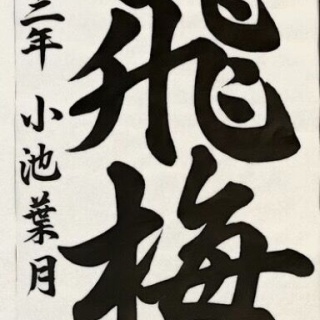 飛梅
二年 小池葉月